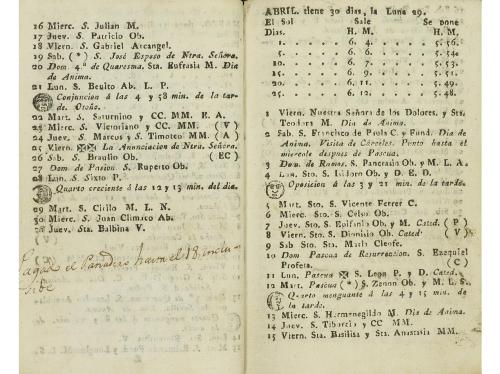 16 Mierc. S. Julian M.
17 Juev. S. Patricio Ob.
18 Viern. S. Gabriel Arcangel.
19 Sab. (*) S. José Esposo de Ntra. Señora.
20 Dom. 4.º de Quaresma. Sta. Eufrasia M. Dia
de Anima.
21 Lun. S. Beulto Ab. L. P.
Conjuncion á las 4 y 58 min. de la tar-
de. Otoño.
22 Mart. S. Saturnino y CC. MM. E. A.
23 Mierc. S. Victoriano y CC. MM. (V)
24 Juev. S. Marcos y S. Timoteo MM. (A)
25 Viern. La Anunciacion de Ntra. Señora.
26 Sab. S. Braulio Ob. (EC)
27 Dom de Pasion. S. Ruperto Ob.
28 Lun. S. Sixto P.
Quarto creciente á las 12 y 13 min. del dia.
29 Mart. S. Cirilo M. L. N.
30 Mierc. S. Juan Climaco Ab.
Juev. Sta. Balbina V.
el Panadero hasta el 18. inclu-
ABRIL tiene 30 dias, la Luna 29.
El Sol Sale Se pone
Dias. H. M. H. M.
1 6. 4. 5. 56.
5 6. 6. 5. 54.
10 6. 7. 5. 53.
15 6. 9. 5. 51.
20 6. 11. 5. 49.
25 6. 12. 5. 48.
1 Viern. Nuestra Señora de los Dolores, y Sta.
Teodora M. Dia de Anima.
2 Sab. S. Francisco de Paula C. y Fund. Dia de
Anima. Visita de Cárceles. Punto hasta el
miercoles despues de Pascua.
3 Dom. de Ramos. S. Pancrasio Ob. y M. L. A.
4 Lun. Sto. S. Isidoro Ob. y D. E. D.
Oposicion á las 3 y 21 min. de la tarde.
5 Mart. Sto. S. Vicente Ferrer C.
6 Mierc. Sto. S. Celso Ob.
7 Juev. Sto. S. Epifanio Ob. y M. Cated. (P)
8 Viern. Sto. S. Dionisio Ob. Cated. (V)
9 Sab Sto. Sta. Maria Cleofe.
10 Dom Pascua de Resurreccion. S. Ezequiel
Profeta. (C)
11 Lun. Pascua S. Leon P. y D. Cated.
12 Mart. Pascua (*) S. Zenon Ob. y M. L. S.
Quarto menguante á las 4 y 15 min. de
la tarde.
13 Mierc. S. Hermenegildo M. Dia de Anima.
14 Juev. S. Tiburcio y CC MM.
15 Viern. Sta. Basilisa y Sta. Anastasia MM.